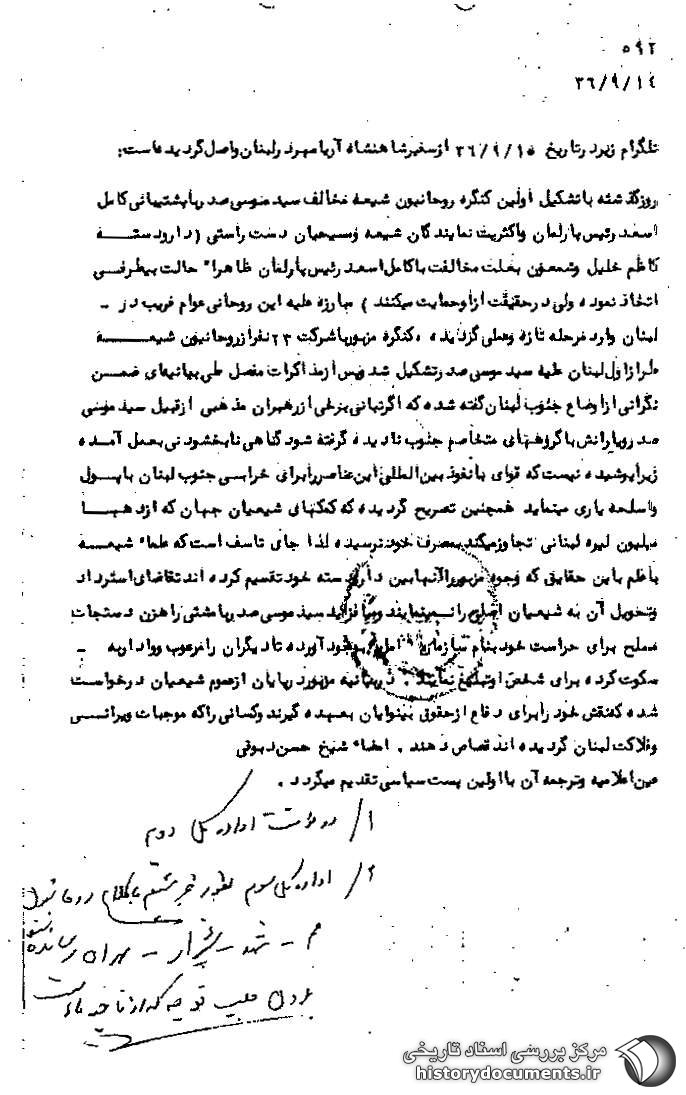 ۵۹۲
۳۶/۹/۱۴
تلگرام زیر در تاریخ ۳۶/۹/۱۵ از سفیر شاهنشاه آریامهر در لبنان واصل گردیده است:
روز گذشته با تشکیل اولین کنگره روحانیون شیعه مخالف سید موسی صدر با پشتیبانی کامل
اسعد رئیس پارلمان واکثریت نمایندگان شیعه ومسیحیان دست راستی (دارودسته
کاظم خلیل وشمعون بعلت مخالفت با کامل اسعد رئیس پارلمان ظاهرا" حالت بیطرفی
اتخاذ نموده ولی در حقیقت از او حمایت میکنند) مبارزه علیه این روحانی عوام فریب در -
لبنان وارد مرحله تازه وعلی گردیده . کنگره مزبور با شرکت ۲۳ نفر از روحانیون شیعه
طراز اول لبنان علیه سید موسی صدر تشکیل شد وپس از مذاکرات مفصل طی بیانیه‌ای ضمن
نگرانی از اوضاع جنوب لبنان گفته شده که اگر تبانی برخی از رهبران مذهبی از قبیل سید موسی
صدر ویارانش با گروههای متخاصم جنوب نادیده گرفته شود گناهی نابخشودنی بعمل آمده
زیرا پوشیده نیست که قوای با نفوذ بین‌المللی این عناصر را برای خرابی جنوب لبنان با پول
واسلحه یاری مینماید همچنین تصریح گردیده که کمکهای شیعیان جهان که از دهها
میلیون لیره لبنانی تجاوز میکند بمصرف خود نرسیده لذا جای تاسف است که علماء شیعه
با علم باین حقایق که وجوه مزبور را آنها بین دارودسته خود تقسیم کرده‌اند تقاضای استرداد
وتحویل آن به شیعیان اصلی را نمینمایند ومیافزاید سید موسی صدر بهائشی راهزن دستجات
مسلح برای حراست خود بنام سازمان امل بوجود آورده تا دیگران را مرعوب ووادار به -
سکوت کرده برای شخص او تبلیغ نمایند . در بیانیه مزبور در پایان از عموم شیعیان درخواست
شده که نقش خود را برای دفاع از حقوق بینوایان بعهده گیرند وکسانی را که موجبات ویرانی
وفلاکت لبنان گردیده‌اند قصاص دهند . امضاء شیخ حسن دبوقی
عین اعلامیه وترجمه آن با اولین پست سیاسی تقدیم میگردد .
۱/ اداره کل دوم
۲/ اداره کل سوم
تهران
جلب توجه
مرکز بررسی اسناد تاریخی
historydocuments.ir